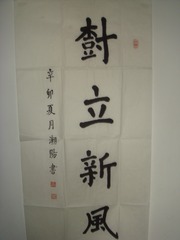 樹立新風
辛卯夏月瀚隆書